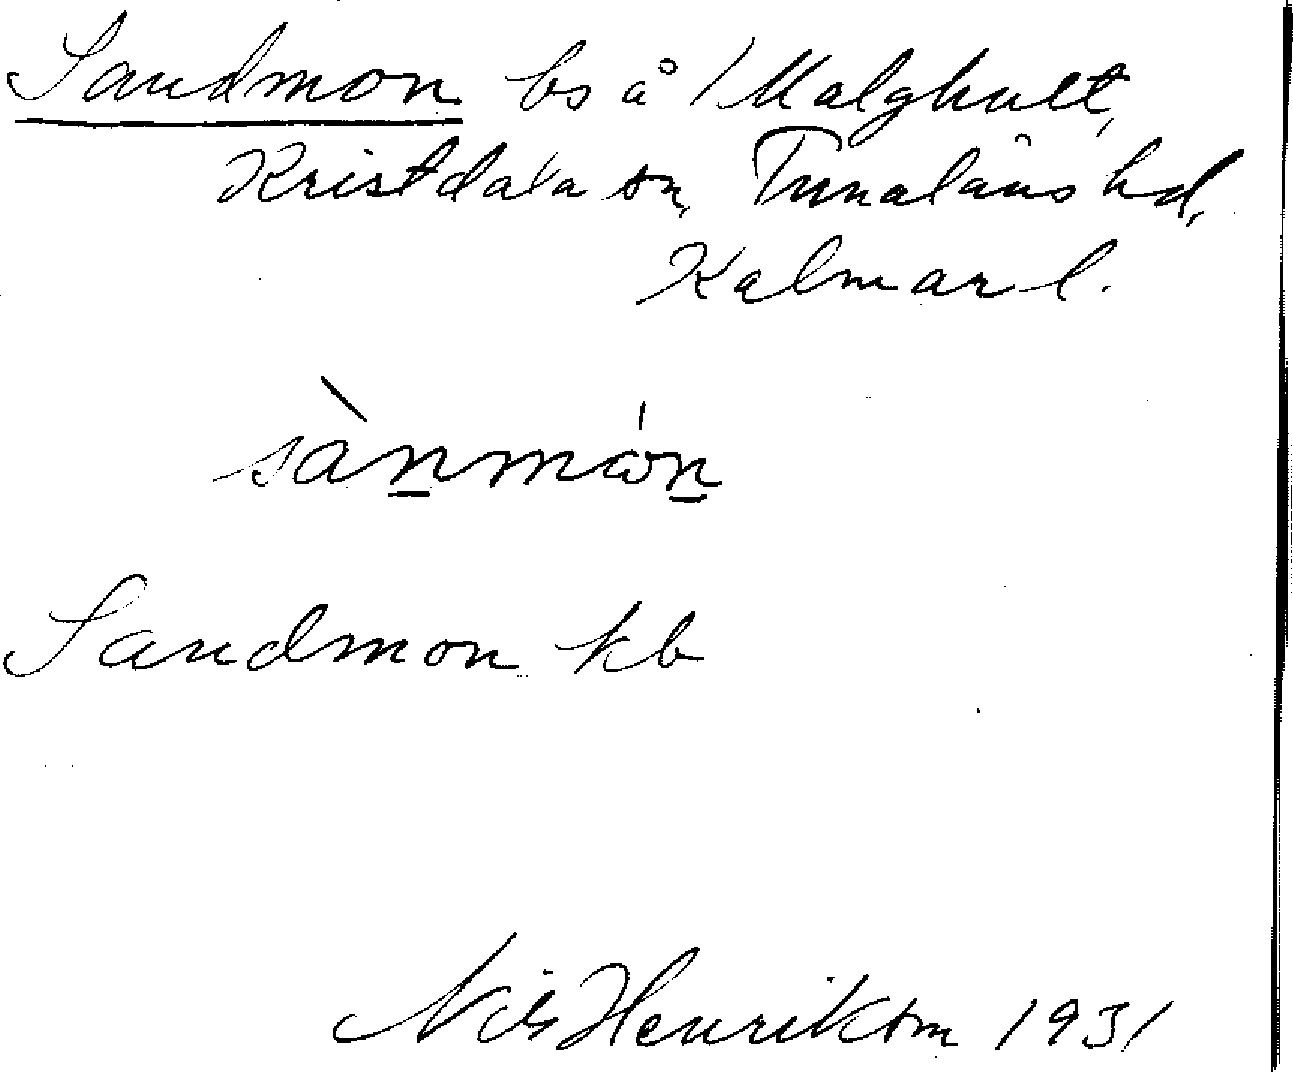 Sandmon bs å Malghult,
Kristdala sn, Tunaläns hd,
Kalmar l.
sànmón
Sandmon kb
Nils Henrikson 1931